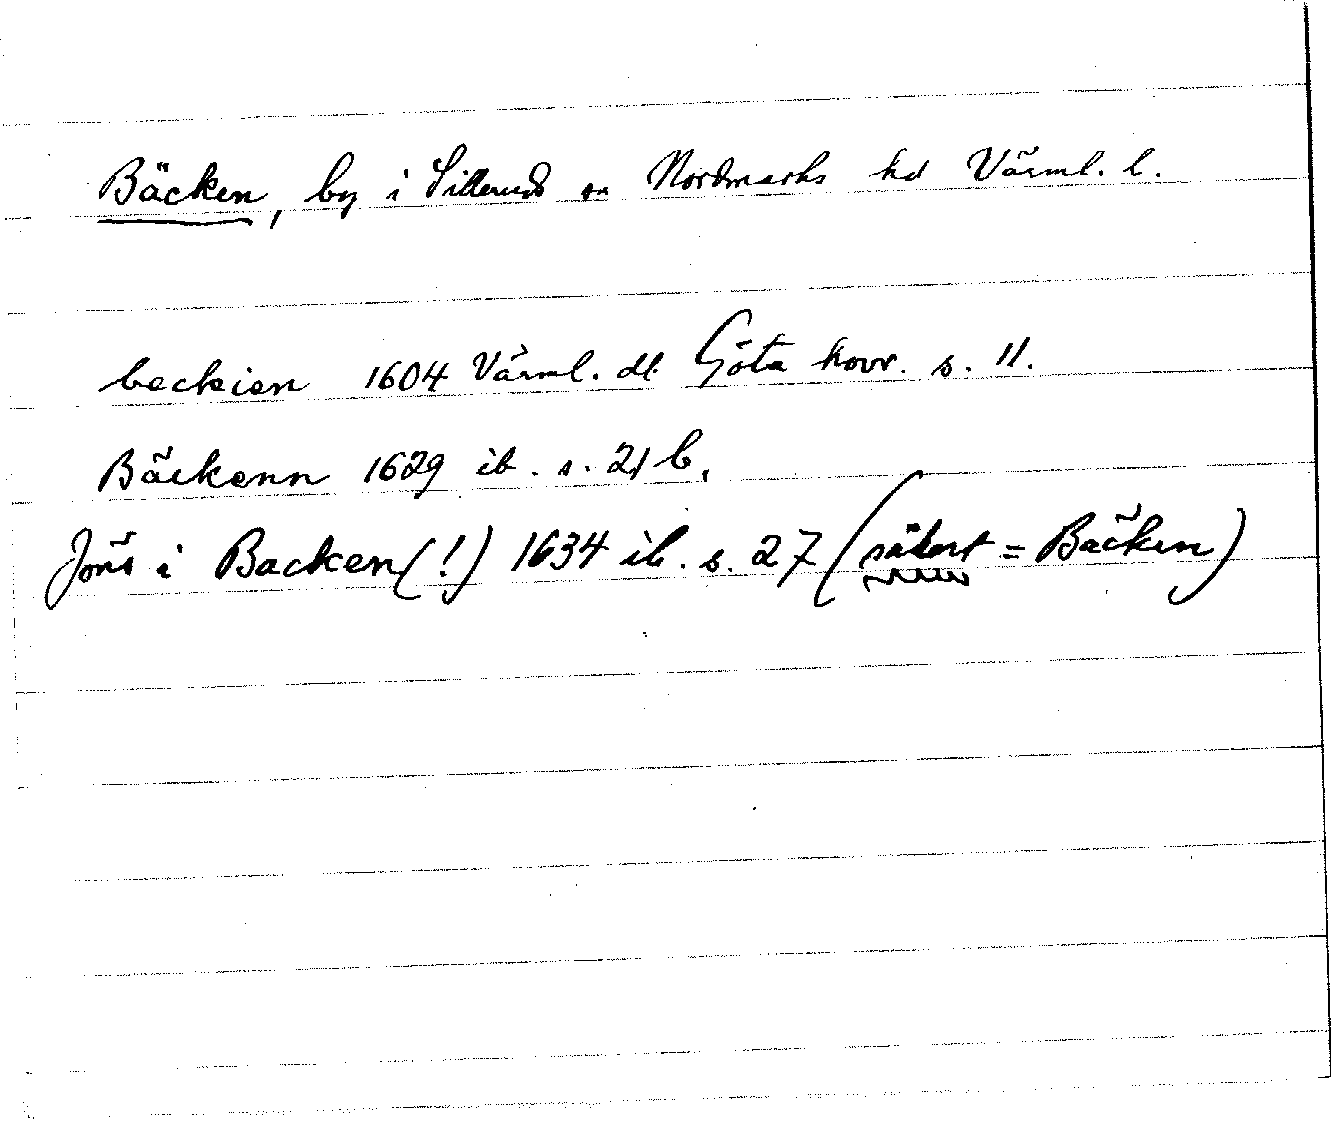 Bäcken, by i Sillerud sn Nordmarks hd Värml. l.
beckien 1604 Värml. dl. Göta hovr. s. 11.
Bäckenn 1629 ib. s. 21 b.
Jöns i Backen(!) 1634 ib. s. 27 (säkert = Bäcken)